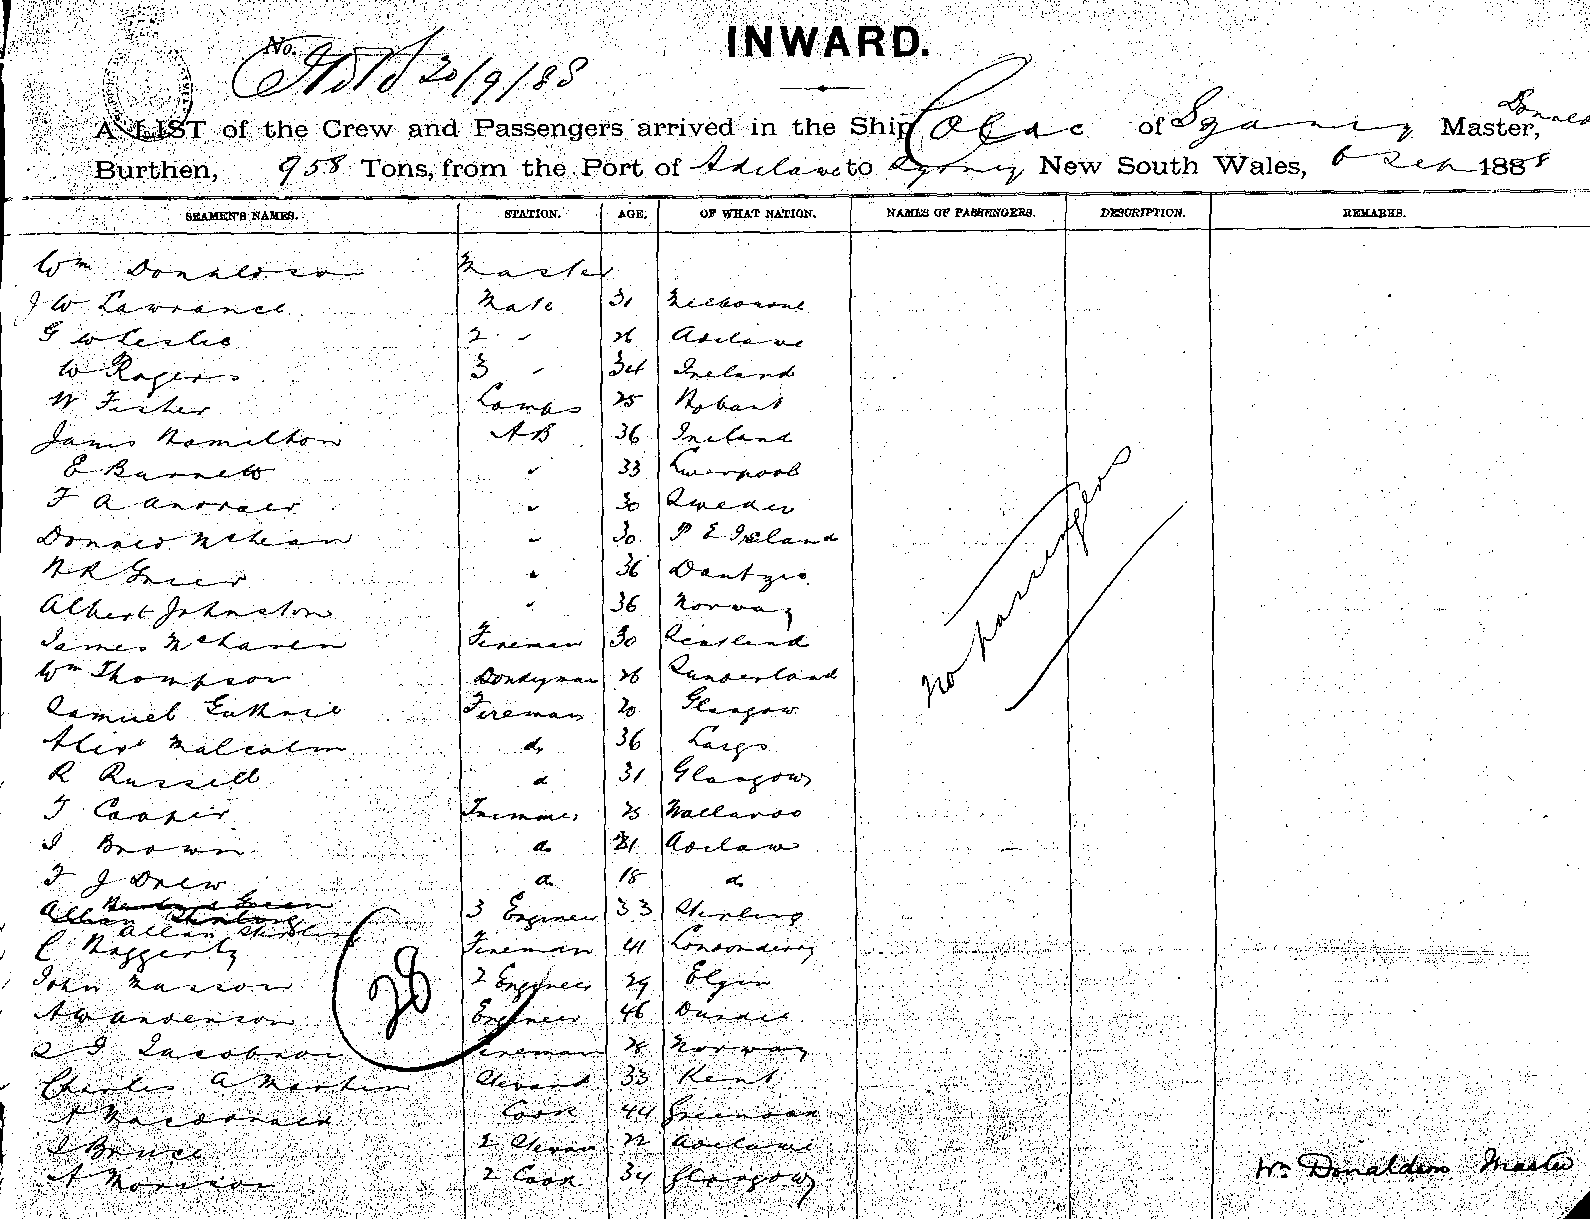 INWARD.
No.
20/9/88
A LIST of the Crew and Passengers arrived in the Ship Colac of Sydney Donald Master,
Burthen, 958 Tons, from the Port of Adelaide to Sydney New South Wales, 6 Sep 1888
SEAMEN'S NAMES. STATION. AGE. OF WHAT NATION. NAMES OF PASSENGERS. DESCRIPTION. REMARKS.
Wm Donaldson Master
J W Lawrance Mate 31 Melbourne
G W Leslie 2 " 26 Adelaide
W Rogers 3 " 34 Ireland
W Fisher Lamps 25 Hobart
James Hamilton AB 36 Ireland
E Burnett " 33 Liverpool
F A " 30 Sweden
Donald McLean " 30 P E Island
H R " 36 Dantzic
Albert Johnston " 36 Norway
James Fireman 30 Scotland
Wm Thompson Donkeyman 26 Sunderland
Samuel Guthrie Fireman 20 Glasgow
Alexr Malcolm do 36 Largs
R Russell do 31 Glasgow
T Cooper Trimmer 25 Wallaroo
J Brown do 21 Adelaide
F J Drew do 18 do
Allan Stirling 3 Engineer 33 Stirling
C Haggerty Fireman 41 Londonderry
John Masson 2 Engineer 29 Elgin
A W Anderson Engineer 46 Dundee
Jacobson Fireman 28 Norway
Charles A Martin Steward 33 Kent
A Macdonald Cook 44 Greenock
J Bruce 2 Steward 22 Adelaide
A Morrison 2 Cook 34 Glasgow
28
no passengers
Wm Donaldson Master